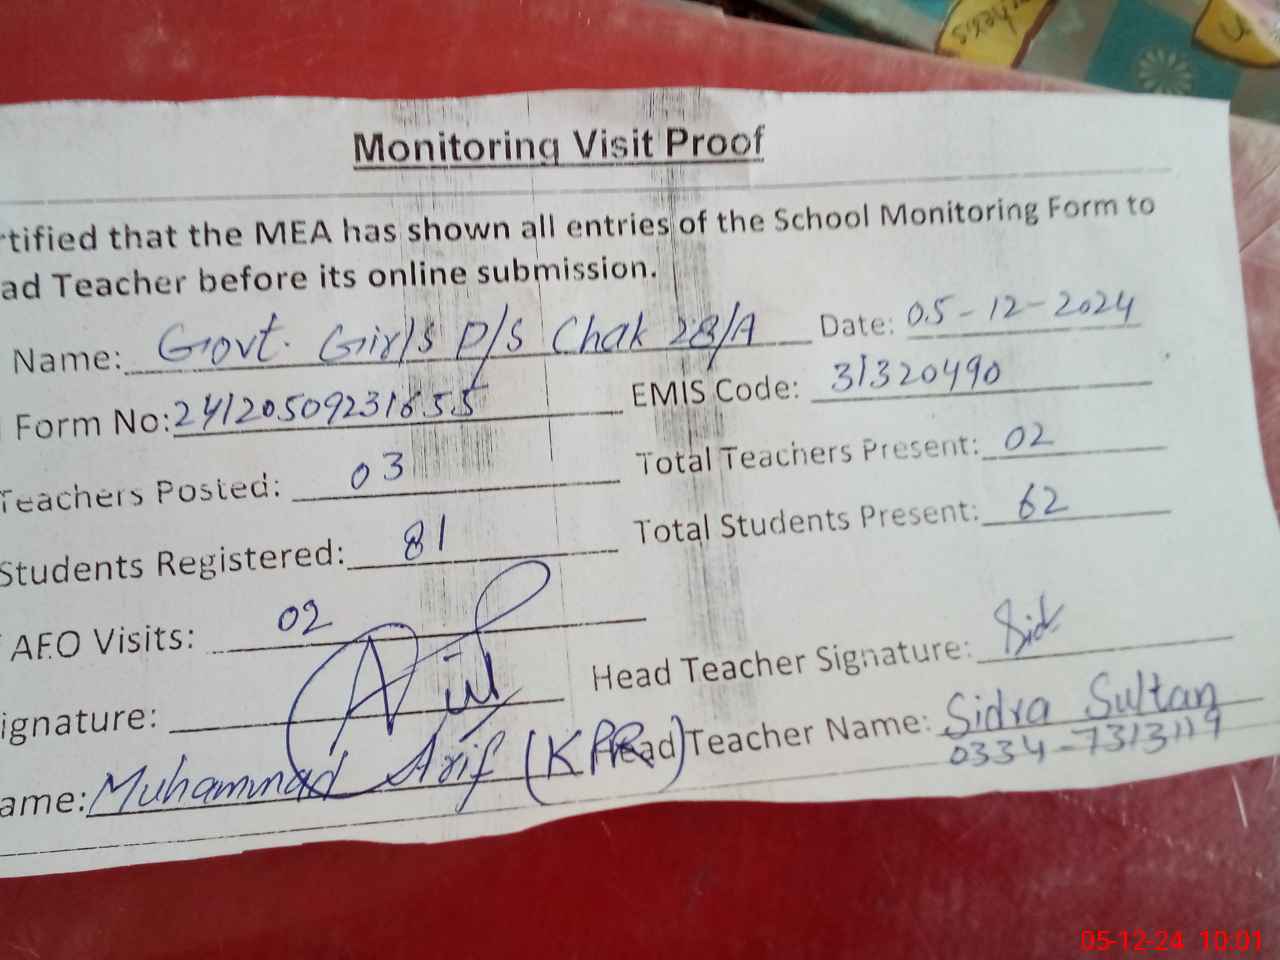 Monitoring Visit Proof
rtified that the MEA has shown all entries of the School Monitoring Form to
ad Teacher before its online submission.
Name: Govt. Girls P/S Chak 28/A Date: 05-12-2024
Form No: 24120509231655 EMIS Code: 31320490
Teachers Posted: 03 Total Teachers Present: 02
Students Registered: 81 Total Students Present: 62
AEO Visits: 02
ignature: Head Teacher Signature: Sid
ame: Muhammad Arif (KPR) ead Teacher Name: Sidra Sultan
0334-7313119
05-12-24 10:01